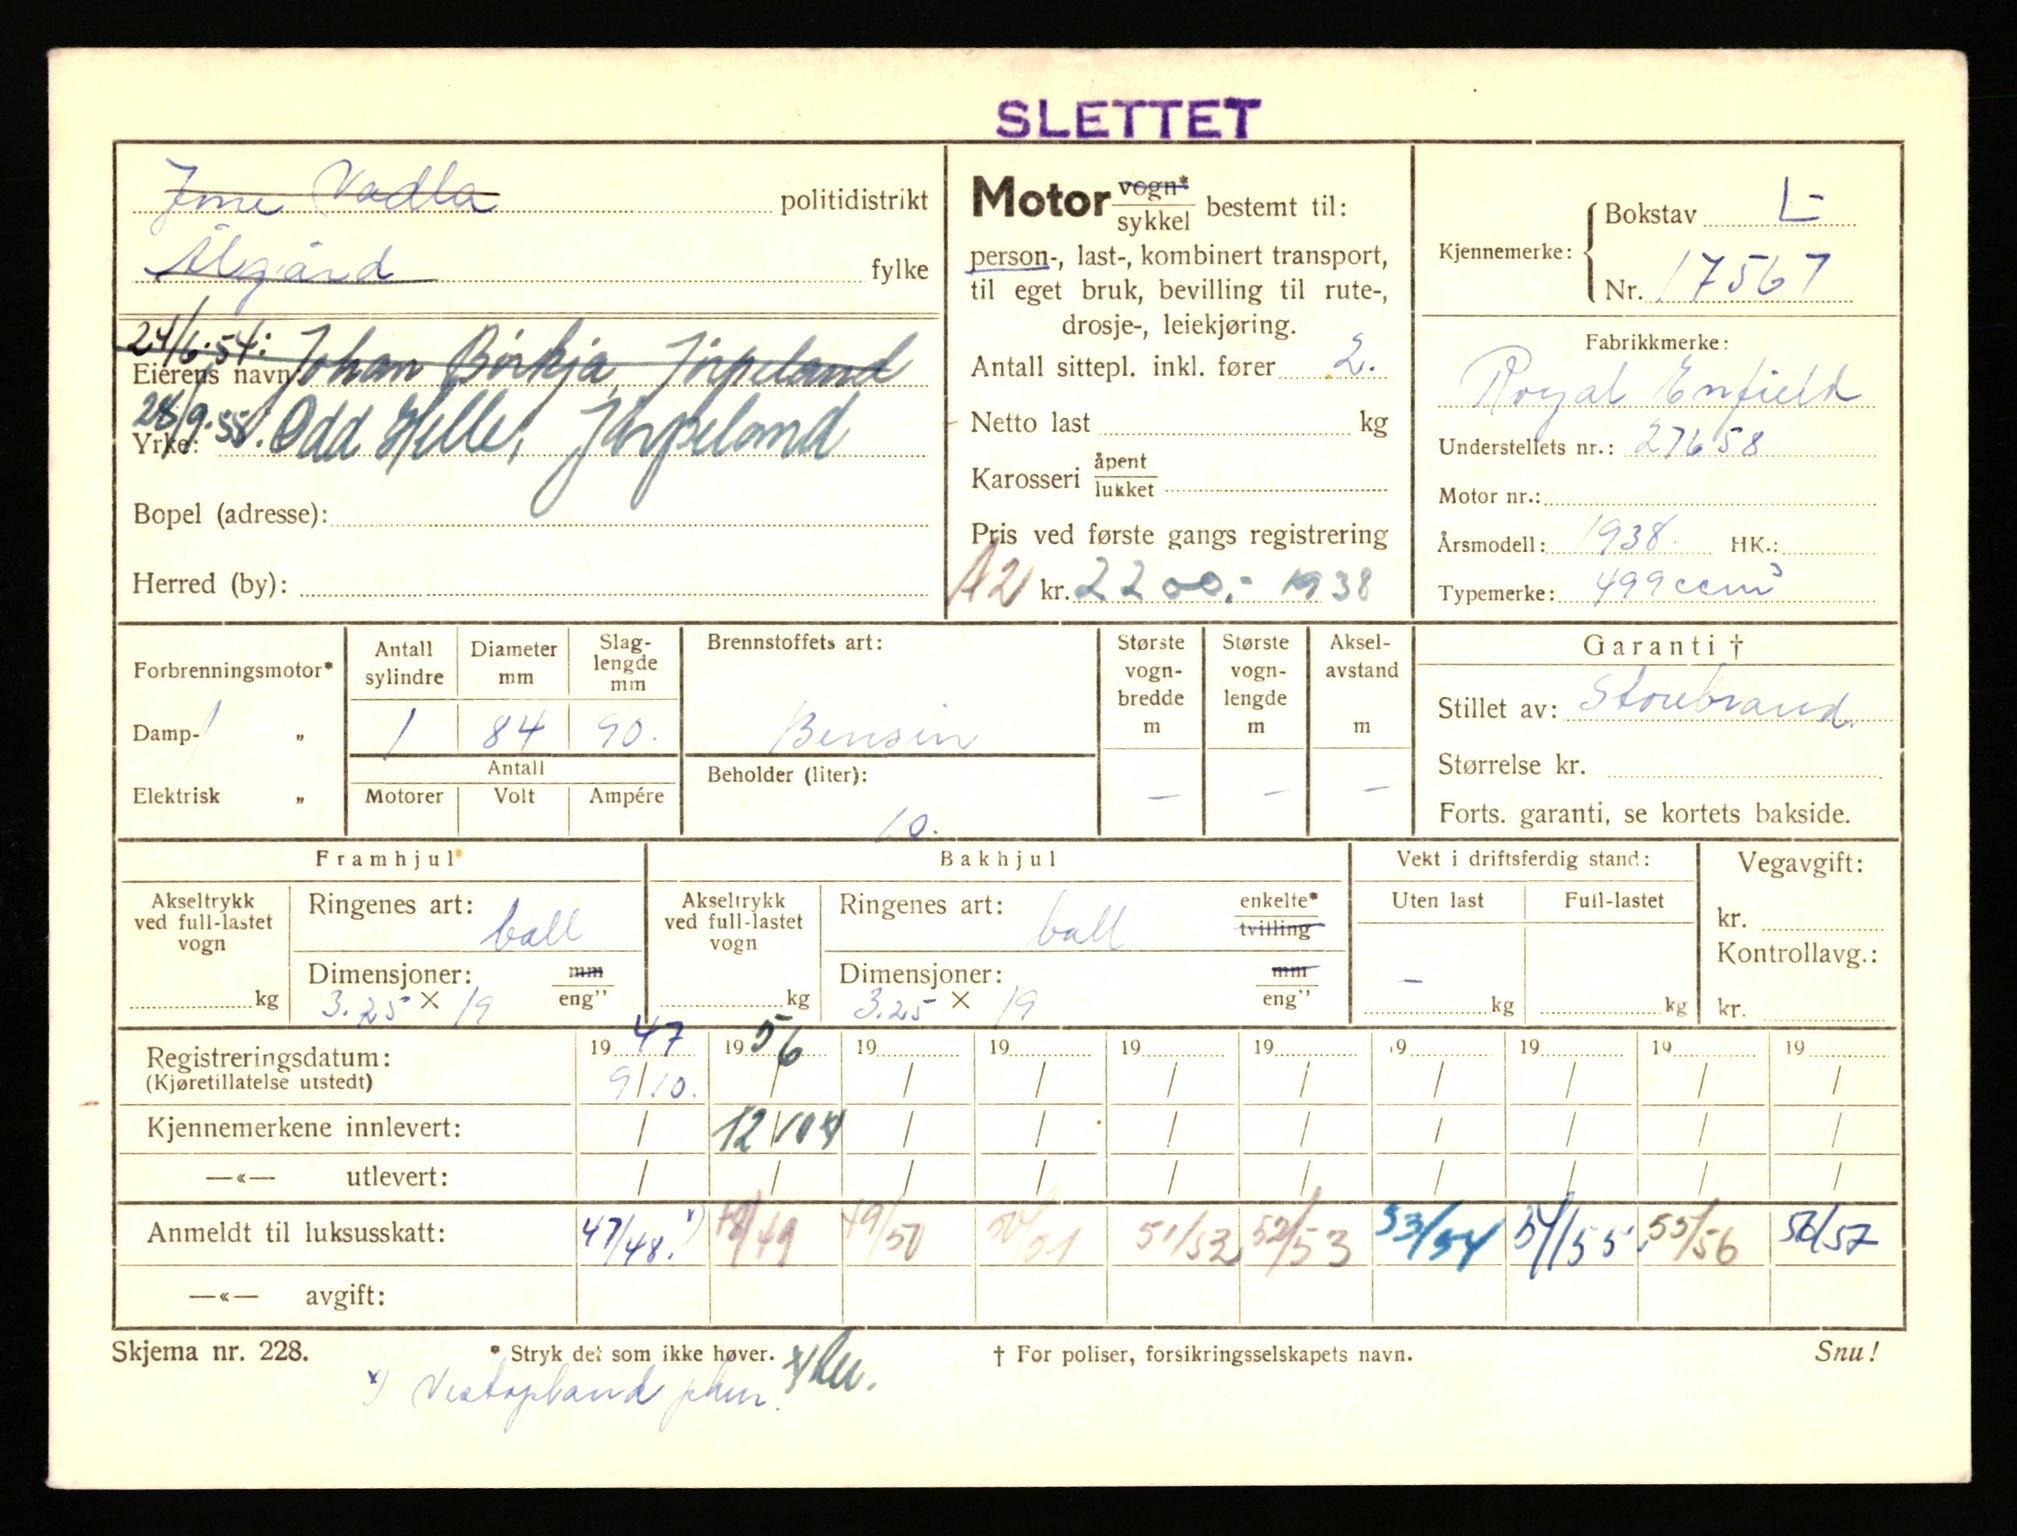 SLETTET
Jone Vadla politidistrikt
Ålgård fylke
24/6.54: Johan Börkja, Jörpeland
Eierens navn
28/9.55. Odd Helle, Jörpeland
Yrke:
Bopel (adresse):
Herred (by):
Motor vogn* / sykkel bestemt til:
person-, last-, kombinert transport,
til eget bruk, bevilling til rute-,
drosje-, leiekjøring.
Antall sittepl. inkl. fører 2.
Netto last kg
Karosseri åpent / lukket
Pris ved første gangs registrering
A2 kr. 2200,- 1938
Kjennemerke:
Bokstav L-
Nr. 17567
Fabrikkmerke:
Royal Enfield
Understellets nr.: 27658
Motor nr.:
Årsmodell: 1938. HK.:
Typemerke: 499 ccm³
Forbrenningsmotor*
Damp- „
Elektrisk „
Antall sylindre
Diameter mm
Slag-lengde mm
1 84 90.
Antall
Motorer Volt Ampére
Brennstoffets art:
Bensin
Beholder (liter):
10.
Største vogn-bredde m
Største vogn-lengde m
Aksel-avstand m
- - -
Garanti †
Stillet av: Storebrand.
Størrelse kr.
Forts. garanti, se kortets bakside.
Framhjul
Akseltrykk ved full-lastet vogn
kg
Ringenes art: ball
Dimensjoner: mm / eng"
3.25 × 19
Bakhjul
Akseltrykk ved full-lastet vogn
kg
Ringenes art: ball enkelte* / tvilling
Dimensjoner: mm / eng"
3.25 × 19
Vekt i driftsferdig stand:
Uten last Full-lastet
- kg kg
Vegavgift:
kr.
Kontrollavg.:
kr.
Registreringsdatum: 1947 1956 19 19 19 19 19 19 19 19
(Kjøretillatelse utstedt) 9/10. / / / / / / / / /
Kjennemerkene innlevert: / 12/10 x) / / / / / / / /
—«— utlevert: / / / / / / / / / /
Anmeldt til luksusskatt: 47/48. x) 48/49 49/50 50/51 51/52 52/53 53/54 54/55 55/56 56/57
—«— avgift:
Skjema nr. 228. * Stryk det som ikke høver. † For poliser, forsikringsselskapets navn. Snu!